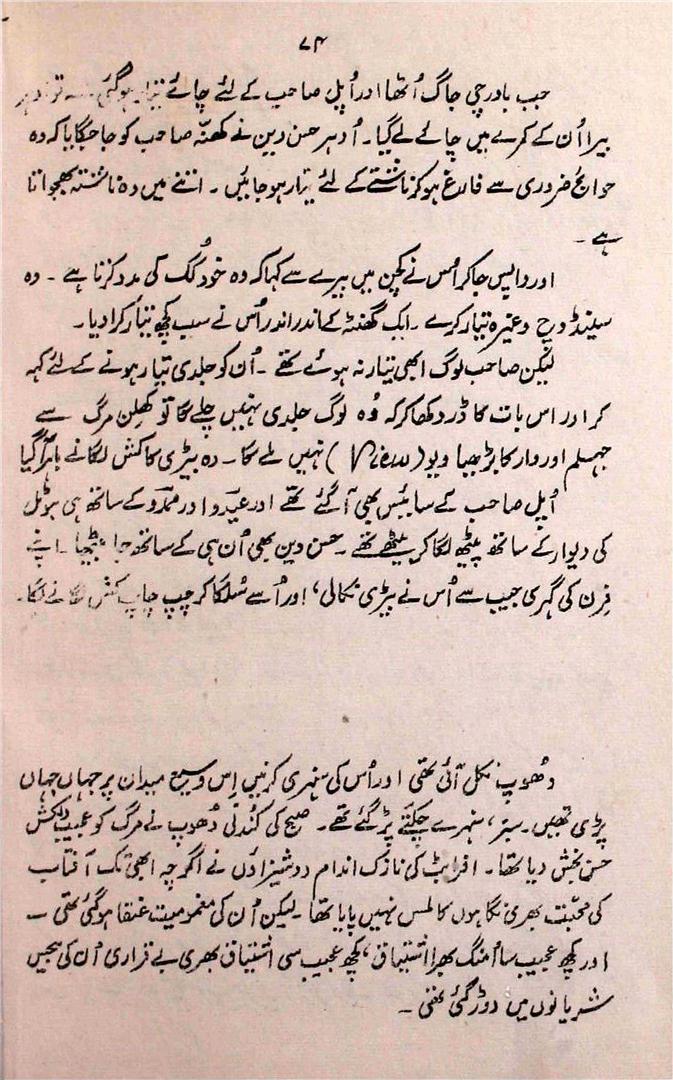 ۷۴
جب باورچی جاگ اُٹھا اور اُپل صاحب کے لئے چائے تیار ہوگئی تو اُدہر
بیرا اُن کے کمرے میں چائے لے گیا۔ اُدہر حسن دین نے کھنّہ صاحب کو جا جگایا کہ وہ
حوائج ضروری سے فارغ ہوکر ناشتے کے لئے تیار ہو جائیں ۔ اتنے میں وہ ناشتہ بھجواتا
ہے ۔
اور واپس جاکر اُس نے کچن میں بیرے سے کہا کہ وہ خود کُک کی مدد کرتا ہے ۔ وہ
سینڈوچ وغیرہ تیار کرے ۔ ایک گھنٹہ کے اندر اندر اُس نے سب کچھ تیار کرا دیا۔
لیکن صاحب لوگ ابھی تیار نہ ہوئے تھے ۔ اُن کو جلدی تیار ہونے کے لئے کہہ
کر اور اس بات کا ڈر دکھا کر کہ وُہ لوگ جلدی نہیں چلے گا تو کھلن مرگ سے
جہلم اور وار کا بڑھیا ویو (View) نہیں ملے گا ۔ وہ بیڑی کا کش لگانے باہر آ گیا
اُپل صاحب کے سائیس بھی آ گئے تھے اور عیدو اور ممدو کے ساتھ ہی ہوٹل
کی دیوار کے ساتھ پیٹھ لگا کر بیٹھے تھے ۔ حسن دین بھی اُن ہی کے ساتھ جا بیٹھا ۔ اپنے
فِرن کی گہری جیب سے اُس نے بیڑی نکالی، اور اُسے سُلگا کر چپ چاپ کش لگانے لگا۔
دُھوپ نکل آئی تھی اور اُس کی سنہری کرنیں اِس وسیع میدان پر جہاں جہاں
پڑی تھیں ۔ سبز، سنہرے چکتے پڑ گئے تھے ۔ صبح کی کُندلی دُھوپ نے مرگ کو عجیب دلکش
حسن بخش دیا تھا۔ افراہٹ کی نازک اندام دوشیزاؤں نے اگرچہ ابھی تک آفتاب
کی محبّت بھری نگاہوں کا لمس نہیں پایا تھا۔ لیکن اُن کی مغمومیت عنقا ہوگئی تھی ۔
اور کچھ عجیب سا اُمنگ بھرا اشتیاق، کچھ عجیب سی اشتیاق بھری بے قراری اُن کی
شریانوں میں دوڑ گئی تھی ۔